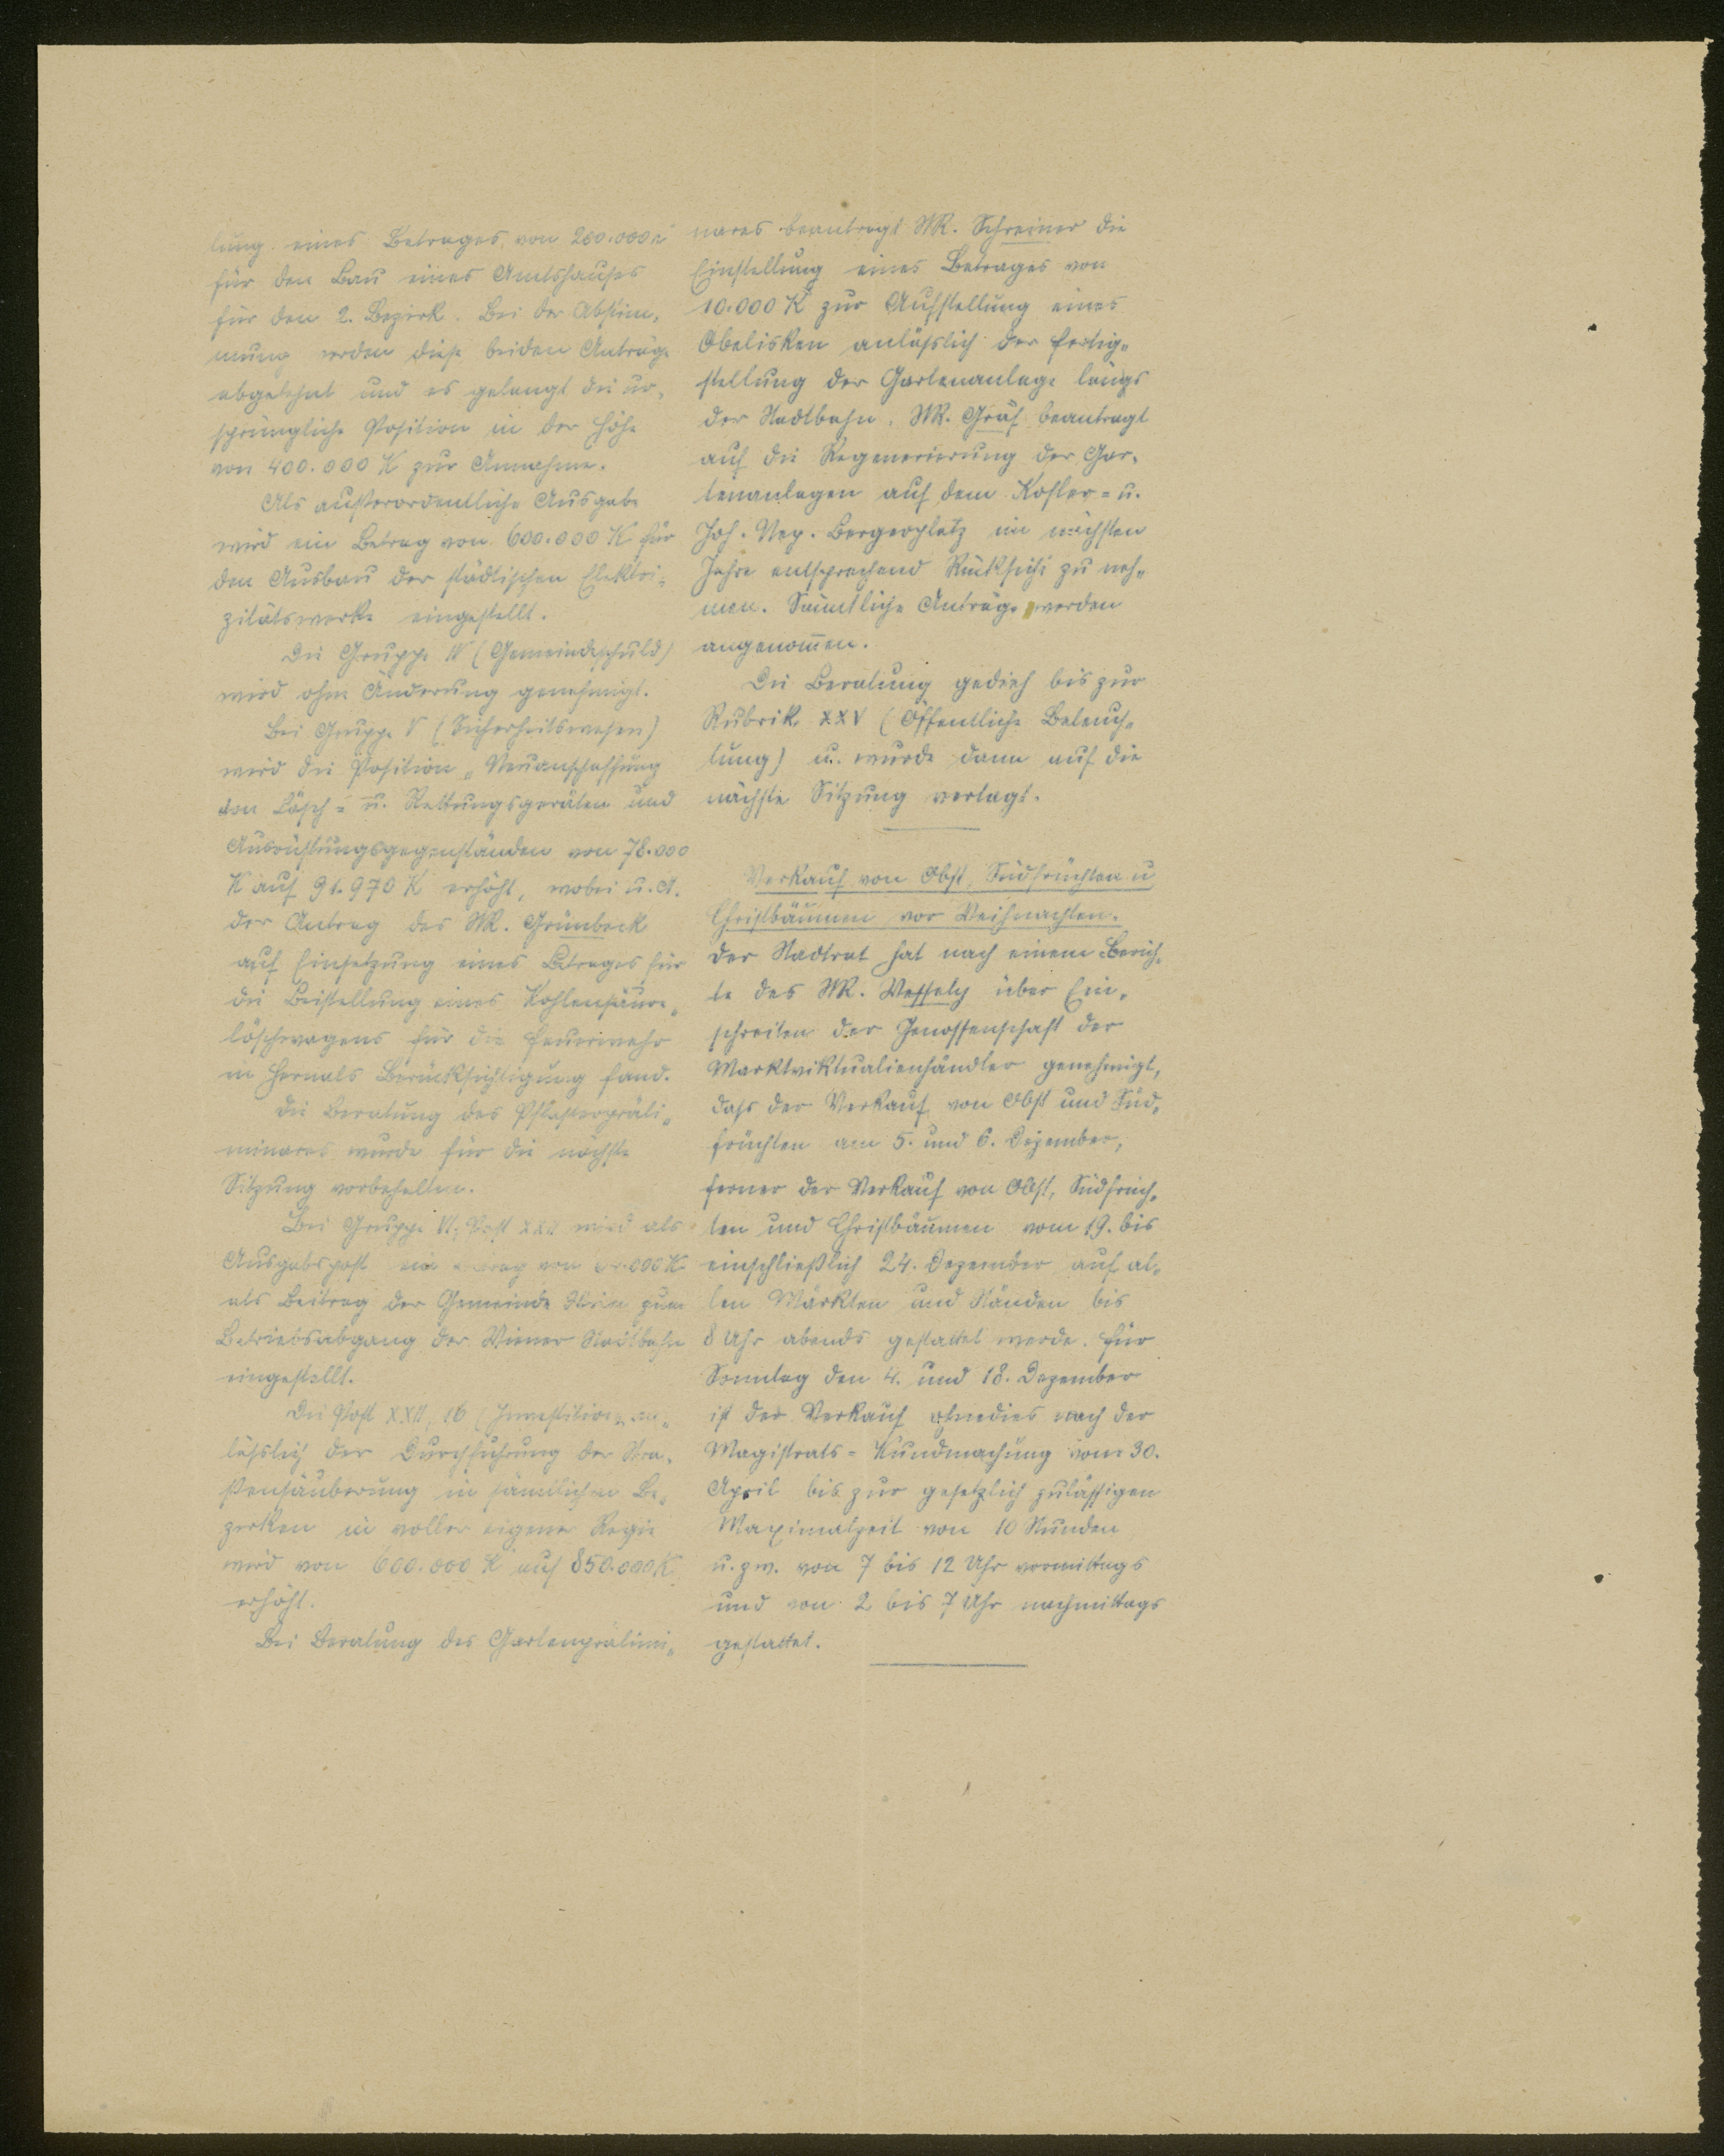 lung eines Betrages von 200.000 K
für den Bau eines Amtshauses
für den 2. Bezirk. Bei der Abstim„
mung werden diese beiden Anträge
abgelehnt und es gelangt die ur„
sprüngliche Position in der Höhe
von 400.000 K zur Annahme.
Als außerordentliche Ausgabe
wird ein Betrag von 600.000 K für
den Ausbau der städtischen Elektri„
zitätswerke eingestellt.
Die Gruppe IV (Gemeindeschuld)
wird ohne Änderung genehmigt.
Bei Gruppe V (Sicherheitswesen)
wird die Position „Neuanschaffung
von Lösch= u. Rettungsgeräten und
Ausrüstungsgegenständen von 78.000
K auf 91.970 K erhöht, wobei u. A.
der Antrag des StR. Grünbeck
auf Einsetzung eines Betrages für
die Beistellung eines Kohlensäure„
löschwagens für die Feuerwehr
in Hernals Berücksichtigung fand.
Die Beratung des Pflasterpräli„
minares wurde für die nächste
Sitzung vorbehalten.
Bei Gruppe VI, Post XXII wird als
Ausgabspost ein Betrag von 000 K
als Beitrag der Gemeinde Wien zum
Betriebsabgang der Wiener Stadtbahn
eingestellt.
Die Post XXII, 16 (Investitionen an„
läßlich der Durchführung der Stra„
ßensäuberung in sämtlichen Be„
zirken in voller eigener Regie
wird von 600.000 K auf 850.000 K
erhöht.
Bei Beratung des Gartenprälimi„
nares beantragt StR. Schreiner die
Einstellung eines Betrages von
10.000 K zur Aufstellung eines
Obelisken anläßlich der Fertig„
stellung der Gartenanlage längs
der Stadtbahn. StR. Gräf beantragt
auf die Regenerierung der Gar„
tenanlagen auf dem Kofler= u.
Joh. Nep. Bergerplatz im nächsten
Jahre entsprechend Rücksicht zu neh„
men. Sämtliche Anträge werden
angenom̅en.
Die Beratung gedieh bis zur
Rubrik XXV (Öffentliche Beleuch„
tung) u. wurde dann auf die
nächste Sitzung vertagt.
Verkauf von Obst, Südfrüchten u
Christbäumen vor Weihnachten.
Der Stadtrat hat nach einem Berich„
te des StR. Wessely über Ein„
schreiten der Genossenschaft der
Marktviktualienhändler genehmigt,
daß der Verkauf von Obst und Süd„
früchten am 5. und 6. Dezember,
ferner der Verkauf von Obst, Südfrüch„
ten und Christbäumen vom 19. bis
einschließlich 24. Dezember auf al„
len Märkten und Ständen bis
8 Uhr abends gestattet werde. Für
Sonntag den 4. und 18. Dezember
ist der Verkauf ohnedies nach der
Magistrats=Kundmachung vom 30.
April bis zur gesetzlich zulässigen
Maximalzeit von 10 Stunden
u. zw. von 7 bis 12 Uhr vormittags
und von 2 bis 7 Uhr nachmittags
gestattet.